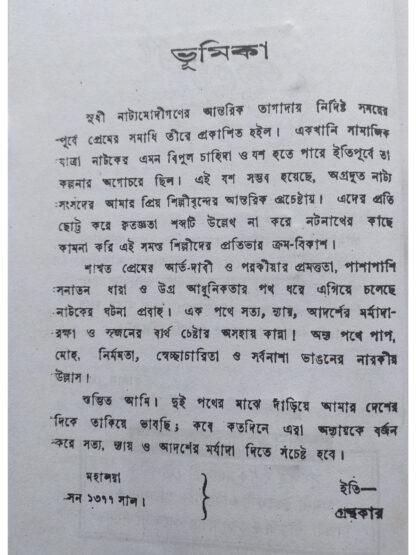 ভূমিকা
সুধী নাট্যামোদীগণের আন্তরিক তাগাদায় নির্দিষ্ট সময়ের
পূর্বে প্রেমের সমাধি তীরে প্রকাশিত হইল। একখানি সামাজিক
যাত্রা নাটকের এমন বিপুল চাহিদা ও যশ হতে পারে ইতিপূর্বে তা
কল্পনার অগোচরে ছিল। এই যশ সম্ভব হয়েছে, অগ্রদূত নাট্য
সংসদের আমার প্রিয় শিল্পীবৃন্দের আন্তরিক প্রচেষ্টায়। এদের প্রতি
ছোট্ট করে কৃতজ্ঞতা শব্দটি উল্লেখ না করে নটনাথের কাছে
কামনা করি এই সমস্ত শিল্পীদের প্রতিভার ক্রম-বিকাশ।
শাশ্বত প্রেমের আর্ত-দাবী ও পরকীয়ার প্রমত্ততা, পাশাপাশি
সনাতন ধারা ও উগ্র আধুনিকতার পথ ধরে এগিয়ে চলেছে
নাটকের ঘটনা প্রবাহ। এক পথে সত্য, ন্যায়, আদর্শের মর্যাদা-
রক্ষা ও সৃজনের ব্যর্থ চেষ্টার অসহায় কান্না। অন্য পথে পাপ,
মোহ, নির্মমতা, স্বেচ্ছাচারিতা ও সর্বনাশা ভাঙনের নারকীয়
উল্লাস।
স্তম্ভিত আমি। দুই পথের মাঝে দাঁড়িয়ে আমার দেশের
দিকে তাকিয়ে ভাবছি; কবে কতদিনে এরা অন্যায়কে বর্জন
করে সত্য, ন্যায় ও আদর্শের মর্যাদা দিতে সচেষ্ট হবে।
মহালয়া
সন ১৩৭৭ সাল।
ইতি—
গ্রন্থকার